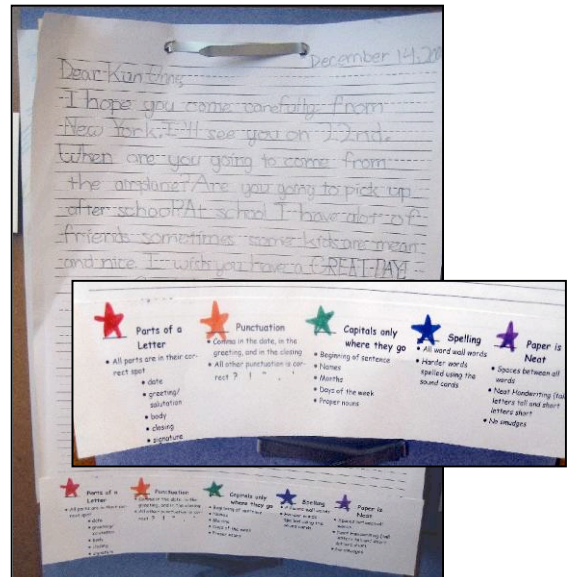 December 14, 20
Dear Kun
I hope you come carefully from
New York. I'll see you on 22nd.
When are you going to come from
the airplane? Are you going to pick up
after school? At school I have alot of
friends sometimes some kids are mean
and nice. I wish you have a GREAT DAY!
Parts of a
Letter
• All parts are in their cor-
rect spot
• date
• greeting/
salutation
• body
• closing
• signature
Punctuation
• Comma in the date, in the
greeting, and in the closing
• All other punctuation is cor-
rect ? ! " . '
Capitals only
where they go
• Beginning of sentence
• Names
• Months
• Days of the week
• Proper nouns
Spelling
• All word wall words
• Harder words
spelled using the
sound cards
Paper is
Neat
• Spaces between all
words
• Neat Handwriting (tall
letters tall and short
letters short
• No smudges
Parts of a
Letter
• All parts are in their cor-
rect spot
• date
• greeting/
salutation
• body
• closing
• signature
Punctuation
• Comma in the date, in the
greeting, and in the closing
• All other punctuation is cor-
rect ? ! " . '
Capitals only
where they go
• Beginning of sentence
• Names
• Months
• Days of the week
• Proper nouns
Spelling
• All word wall words
• Harder words
spelled using the
sound cards
Paper is
Neat
• Spaces between all
words
• Neat Handwriting (tall
letters tall and short
letters short
• No smudges